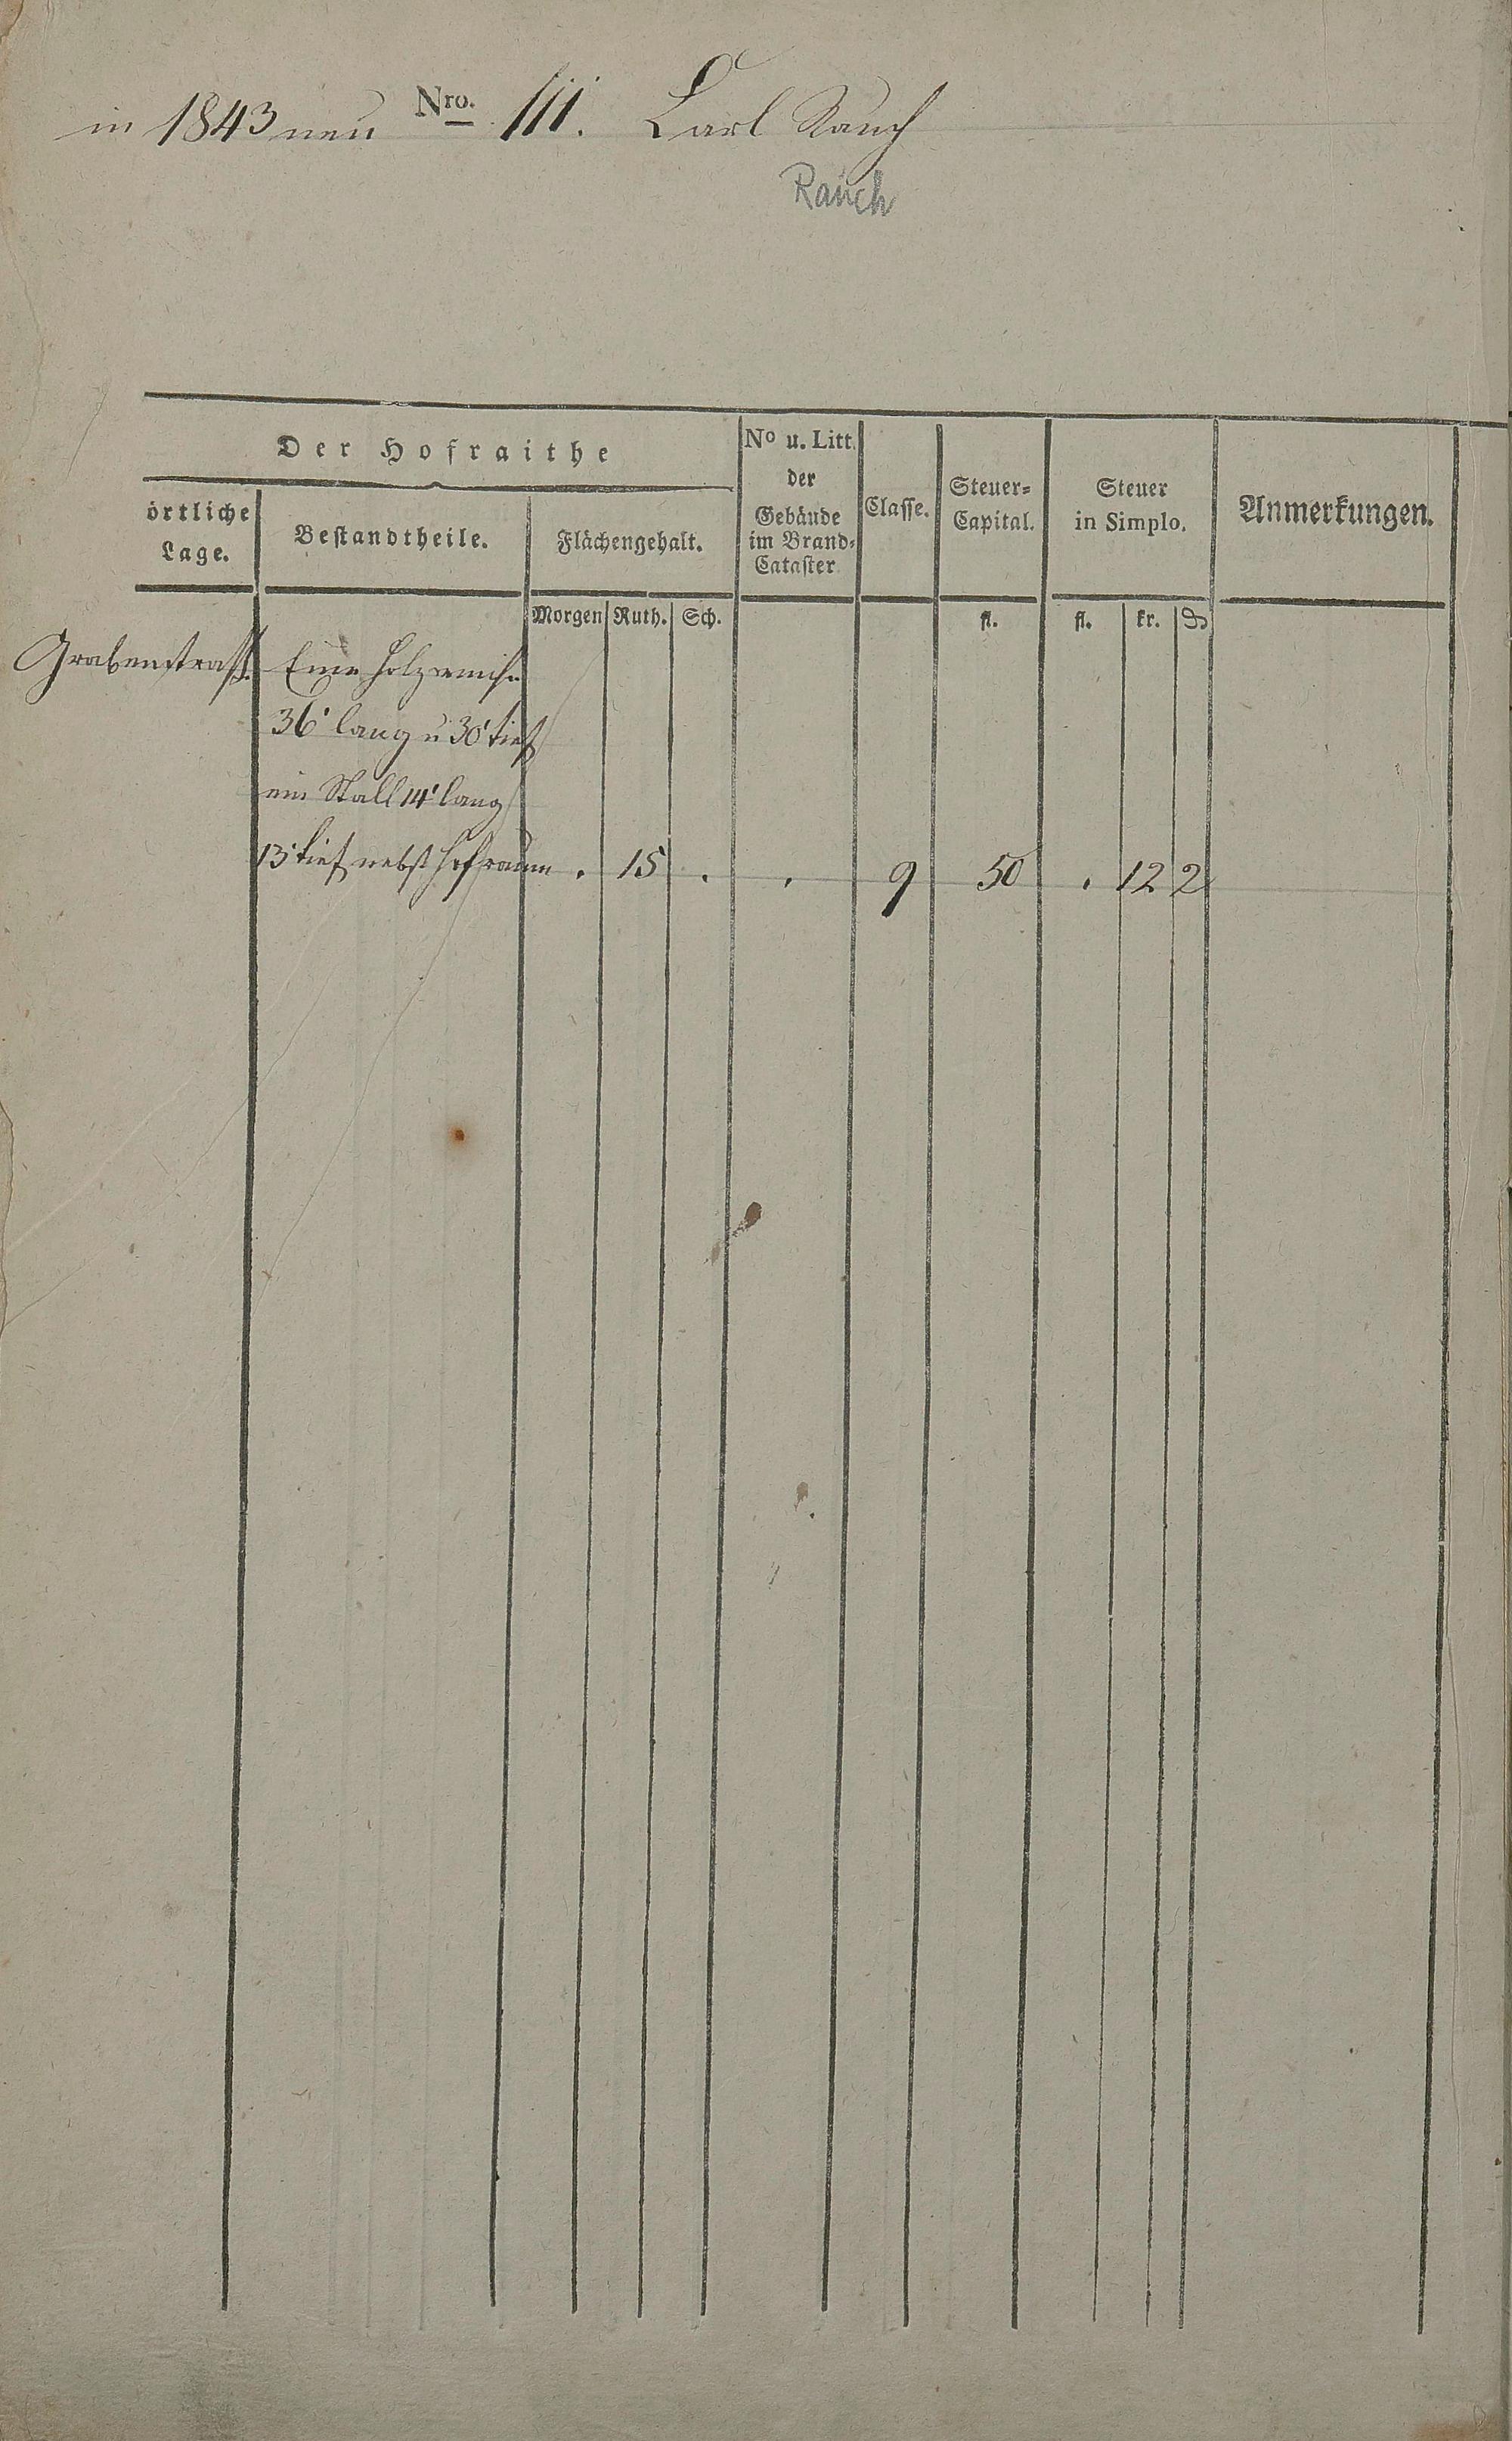 in 1843 neu Nro. 111. Carl Rauch
Rauch
Der Hofraithe
örtliche Lage.
Bestandtheile.
Flächengehalt.
No u. Litt. der Gebäude im Brand-Cataster
Classe.
Steuer-Capital.
Steuer in Simplo.
Anmerkungen.
Morgen Ruth. Sch. fl. fl. kr. ₰
Grabenstraß. Eine Holzremise
36' lang u 30' tief
ein Stall 14' lang
13' tief nebst Hofraum . 15 . . 9 50 . 12 2